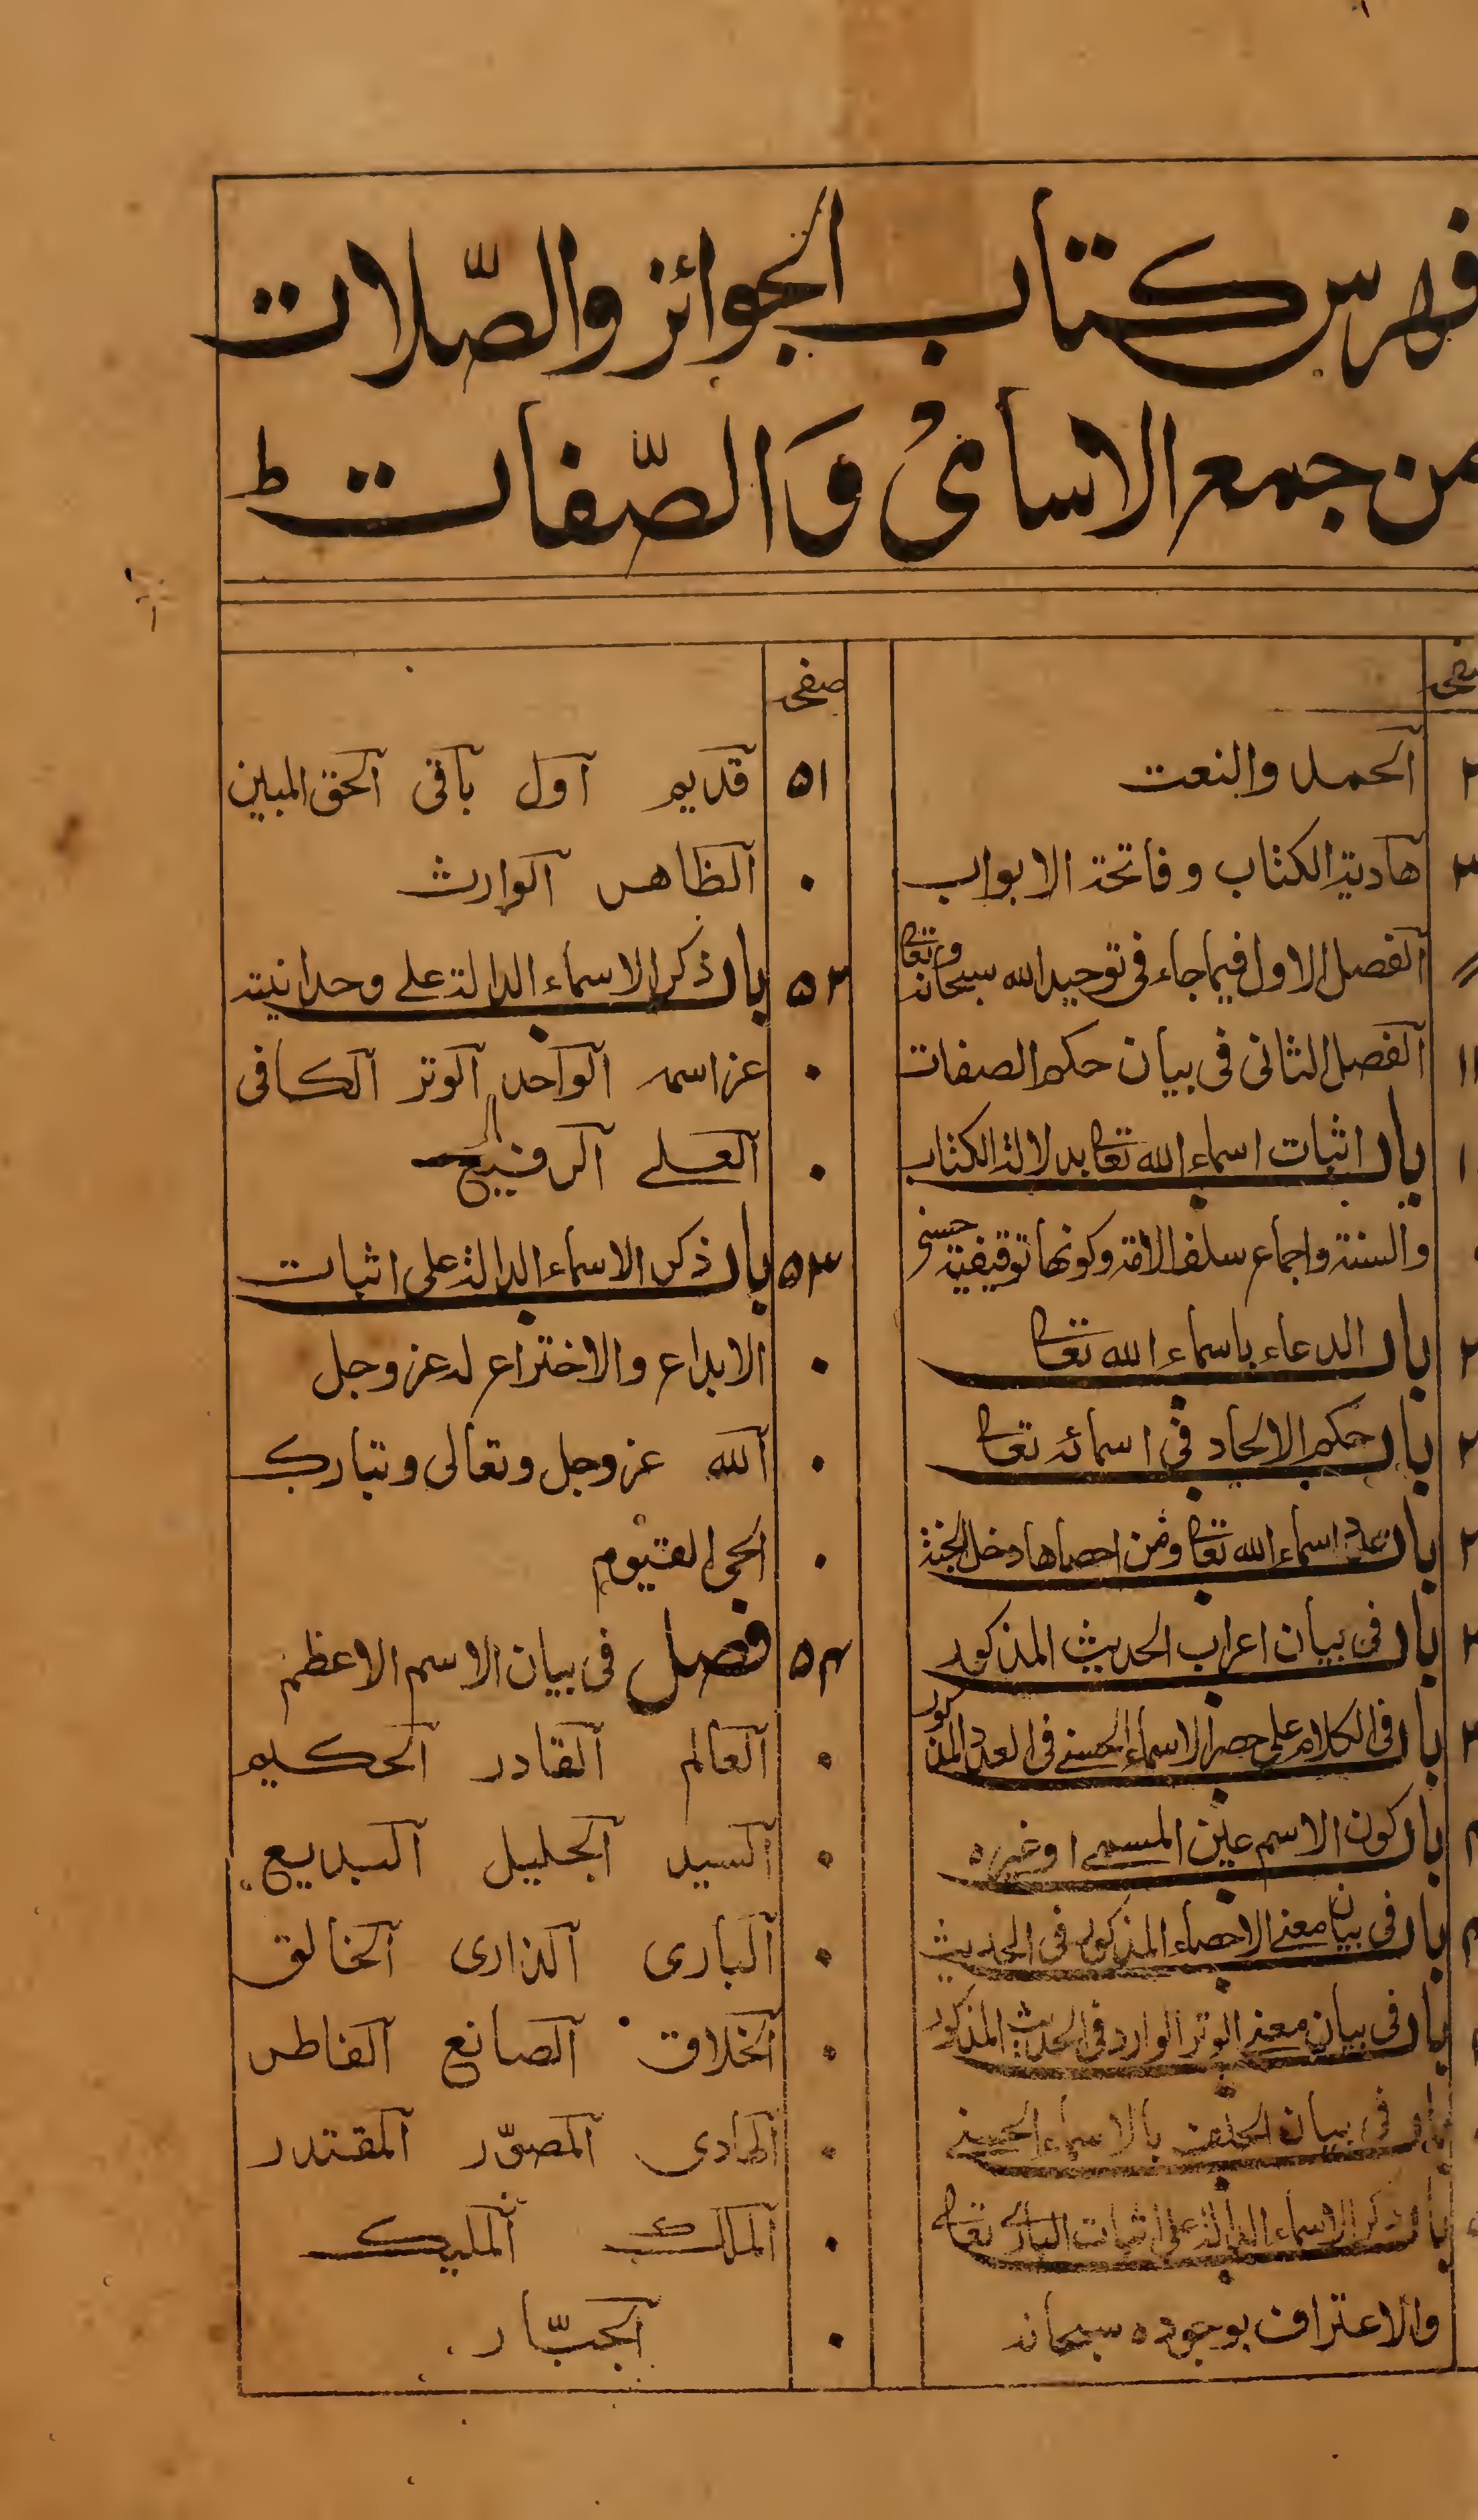 فهرس كتاب الجوائز والصّلات
من جمع الاسامى وَالصّفات ط
صفحہ
الحمد والنعت
هادية الكتاب وفاتحة الابواب
الفصل الاول فيما جاء فى توحيد الله سبحانه وتعا
١١ الفصل الثانى فى بيان حكم الصفات
باب اثبات اسماء الله تعا بدلالة الكتاب
والسنة واجماع سلف الامة وكونها توقيفية حسنى
باب الدعاء باسماء الله تعا
باب حكم الالحاد فى اسمائه تعا
باب عدد اسماء الله تعا ومن احصاها دخل الجنة
باب فى بيان اعراب الحديث المذكور
باب فى الكلام على حصر الاسماء الحسنے فى العدد المذكور
باب كون الاسم عين المسمى او غيره
باب فى بيان معنے الاحصاء المذكور فى الحديث
باب فى بيان معنے الوتر الوارد فى الحديث المذكور
باب فى بيان الحلف بالاسماء الحسنے
باب ذكر الاسماء الدالة على اثبات البارى تعا
والاعتراف بوجوده سبحانه
صفحہ
٥١ قديم اول باقى الحق المبين
٠ الظاهر الوارث
٥٢ باب ذكر الاسماء الدالة على وحدانيته
٠ عز اسمه الواحد الوتر الكافى
٠ العلے الرفيع
٥٣ باب ذكر الاسماء الدالة على اثبات
الابداع والاختراع له عز وجل
٠ الله عز وجل وتعالى وتبارك
٠ الحى القيوم
٥٤ فصل فى بيان الاسم الاعظم
٠ العالم القادر الحكيم
٠ السيد الجليل البديع
٠ البارى الذارى الخالق
٠ الخلاق الصانع الفاطر
٠ الهادى المصوّر المقتدر
٠ الملك المليك
٠ الجبّار